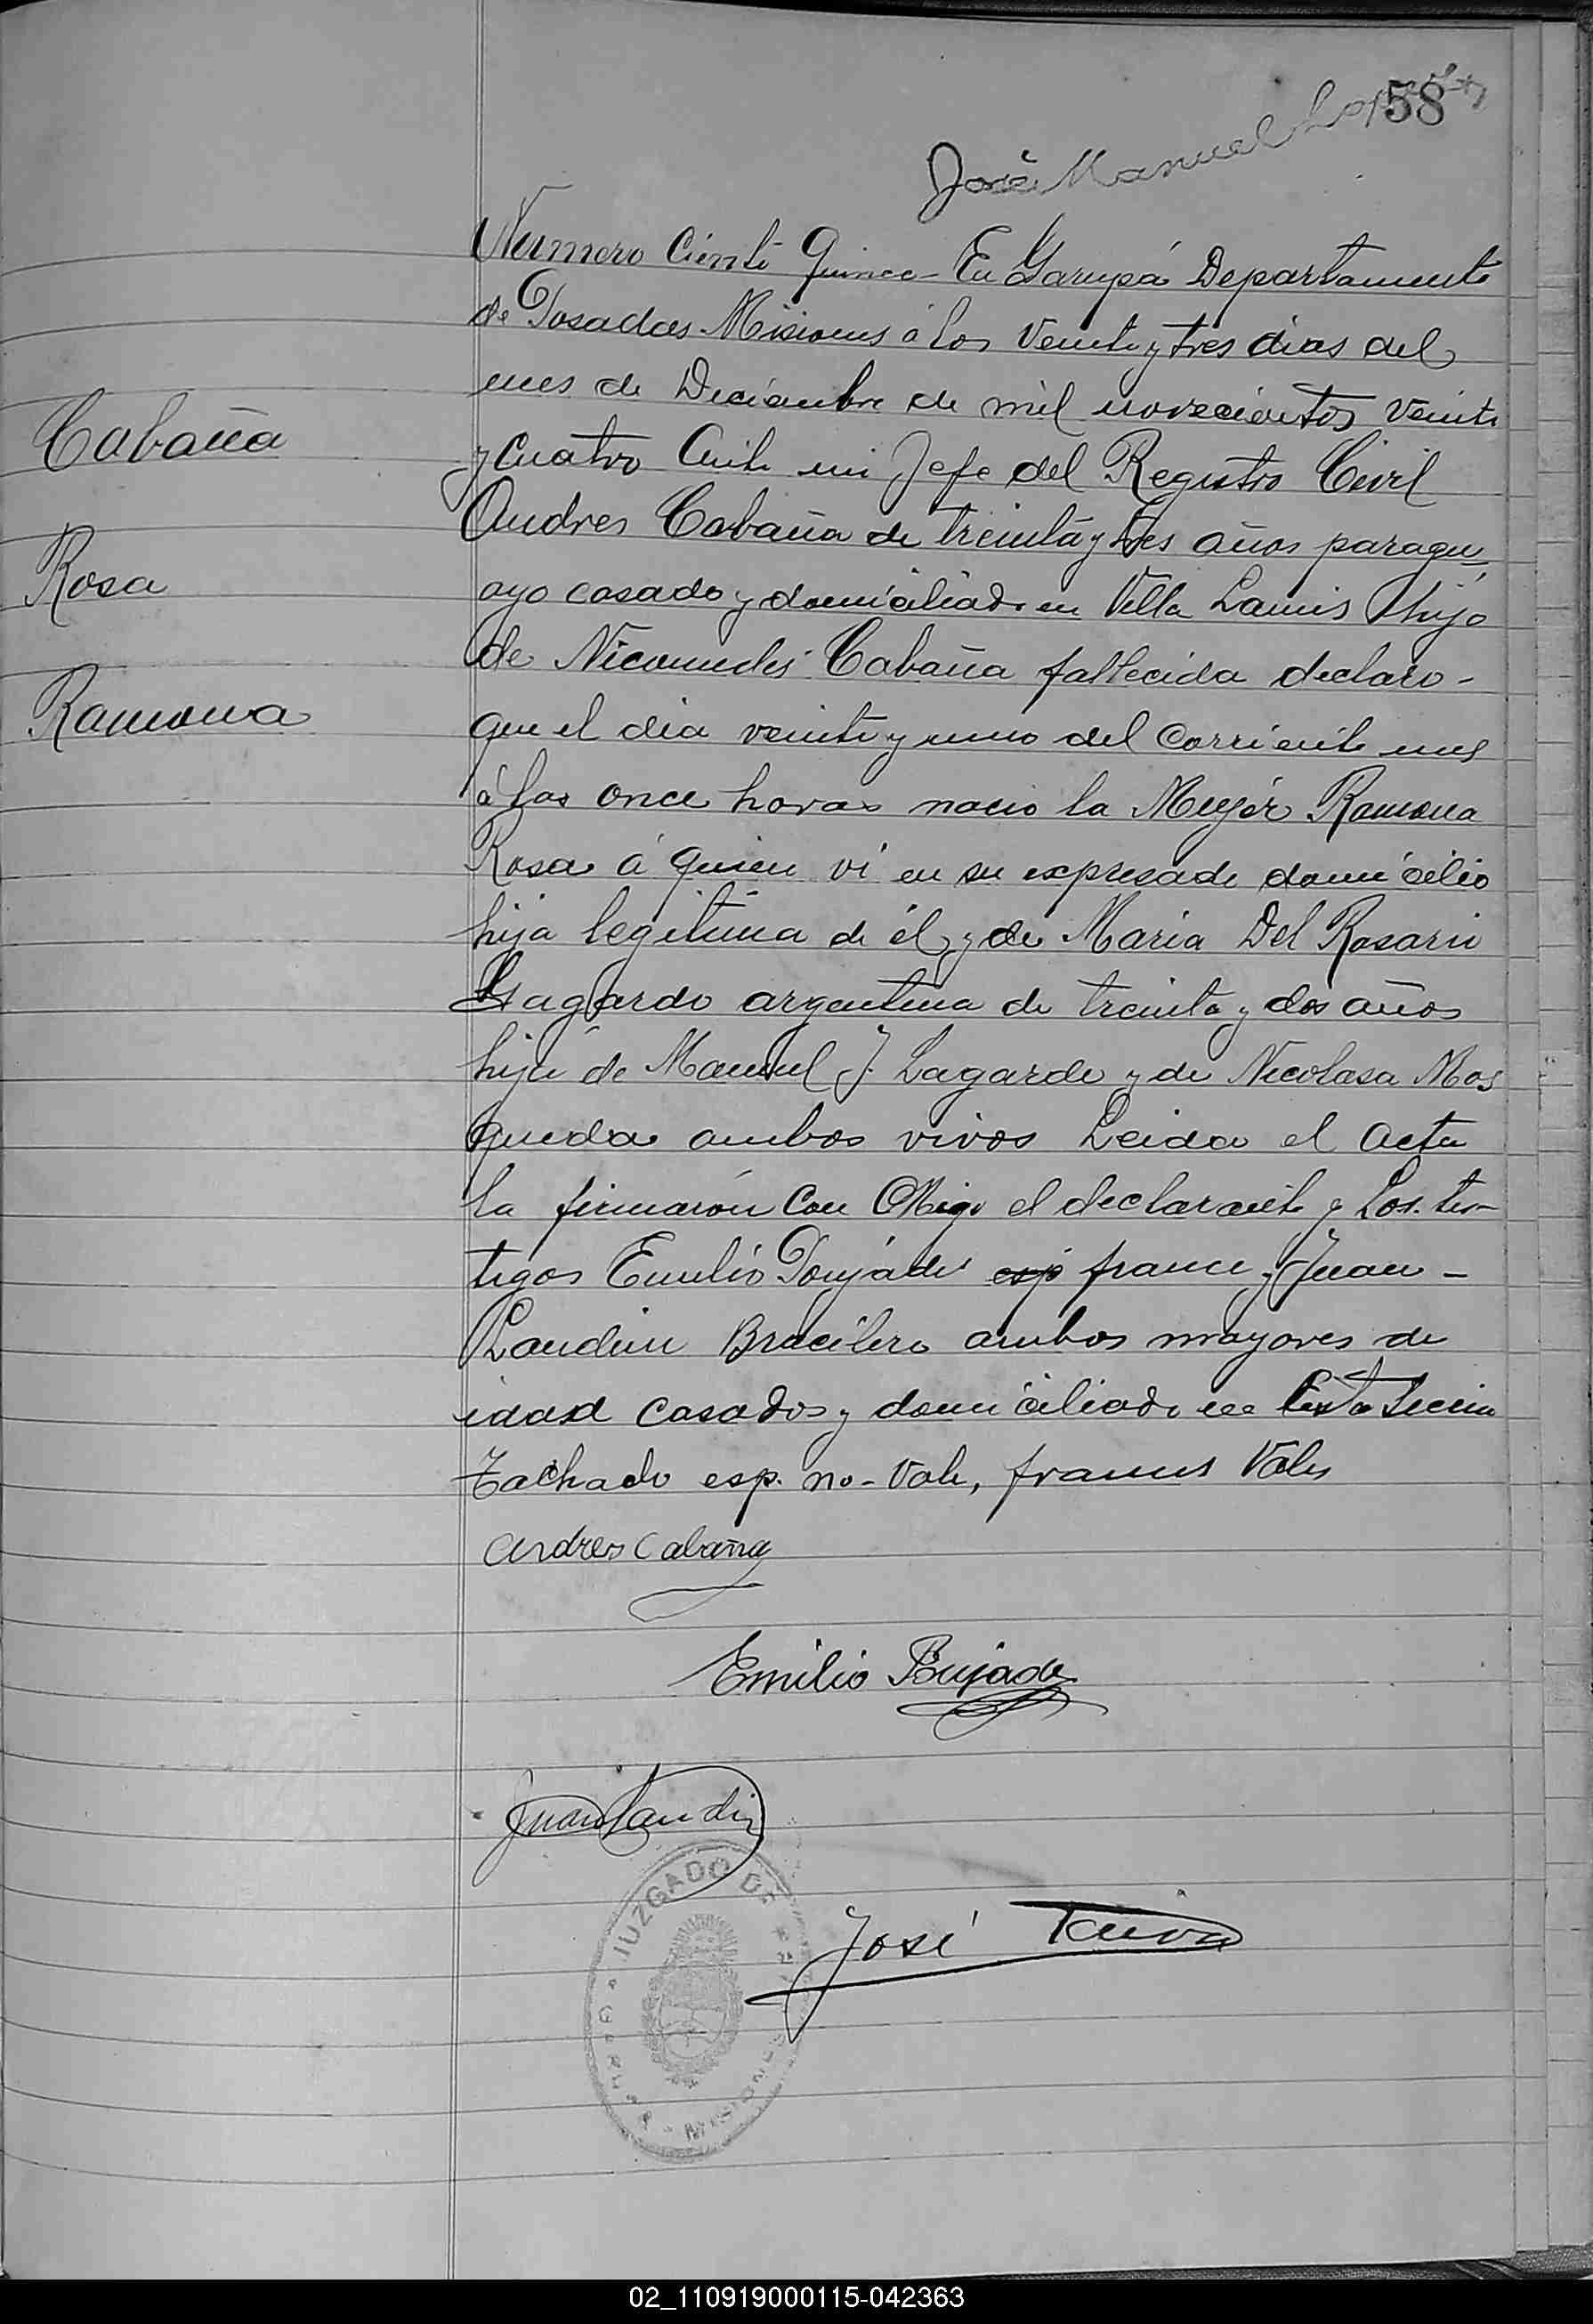 58
José Manuel
Numero Ciento Quince - En Garupá Departamento
de Posadas Misiones á los Veinte y tres dias del
mes de Deciembre de mil novecientos Veinte
y Cuatro Ante mi Jefe del Registro Civil
Cabaña
Andres Cabaña de treinta y tres años paragu_
Rosa
ayo casado y domiciliado en Villa Lanus hijo
de Nicomedes Cabaña fallecida declaro -
Ramona
que el dia veinte y uno del corriente mes
á las once horas nacio la Mujér Ramona
Rosa á quien vi en su expresado domicilio
hija legitima de él y de Maria Del Rosario
Lagardo argentina de treinta y dos años
hija de Manuel J. Lagardo y de Nicolasa Mos
queda ambos vivos Leida el acta
la firmarón Con Migo el declarante y Los. tes-
tigos Emilio Poujade esp france y Juan -
Landin Bracilero ambos mayores de
idad casados y domiciliado en Esta
Tachado esp. no - Vale, frances Vale
Andres Cabaña
Emilio Bujade
Juan Landin
JUZGADO DE PAZ
GARUPA - MISIONES
José
02_110919000115-042363